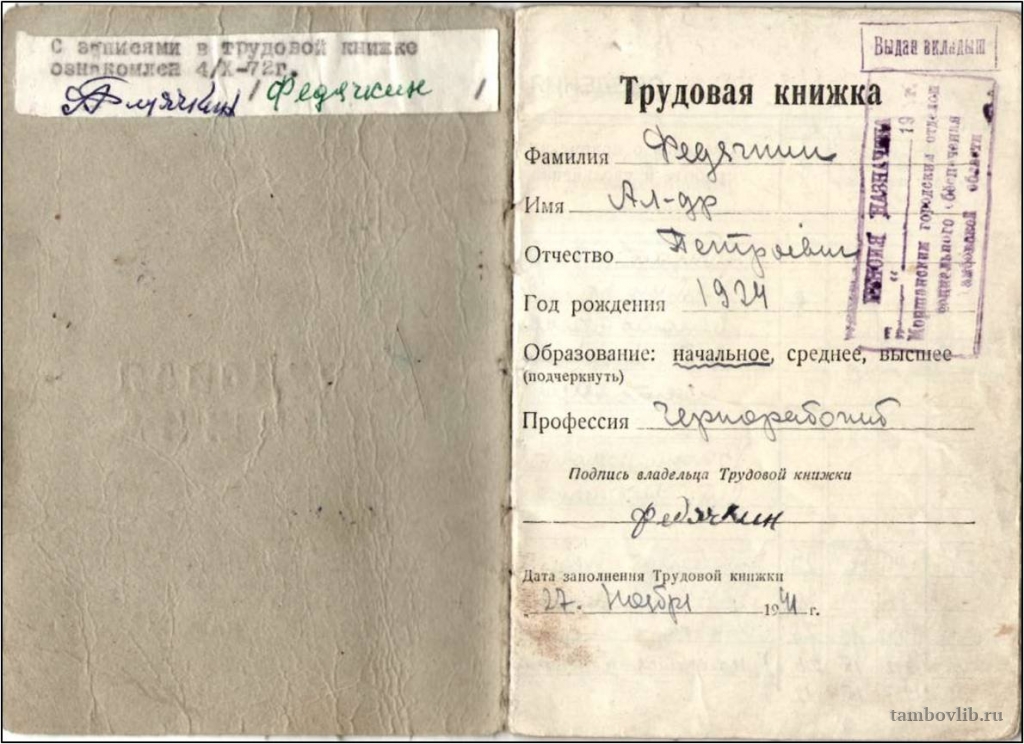 С записями в трудовой книжке
ознакомлен 4/X-72г.
/ Федячкин /
Выдан вкладыш
Трудовая книжка
Фамилия Федячкин
Имя Ал-др
Отчество Петрович
Год рождения 1924
Образование: начальное, среднее, высшее
(подчеркнуть)
Профессия Чернорабочий
Подпись владельца Трудовой книжки
Федячкин
Дата заполнения Трудовой книжки
27. Ноября 1941 г.
ПЕНСИЯ НАЗНАЧЕНА
" " 19 г.
Моршанским городским отделом
социального обеспечения
Тамбовской области
tambovlib.ru